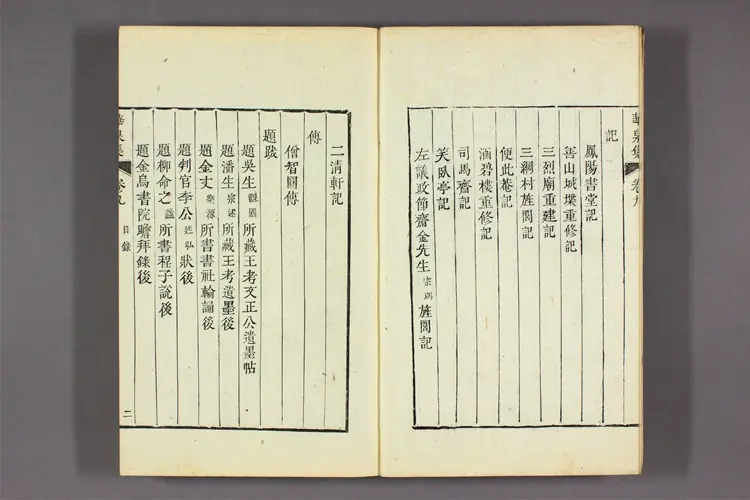 華泉集 卷九
記
鳳陽書堂記
善山城堞重修記
三烈廟重建記
三綱村旌閭記
便此菴記
涵碧樓重修記
司馬齋記
笑臥亭記
左議政節齋金先生宗瑞旌閭記
二淸軒記
傳
僧智圓傳
題跋
題吳生所藏王考文正公遺墨帖
題潘生宗述所藏王考遺墨後
題金丈樂源所書書社輪誦後
題判官李公廷弘狀後
題柳命之所書程子說後
題金烏書院瞻拜錄後
華泉集 卷九 目錄 二